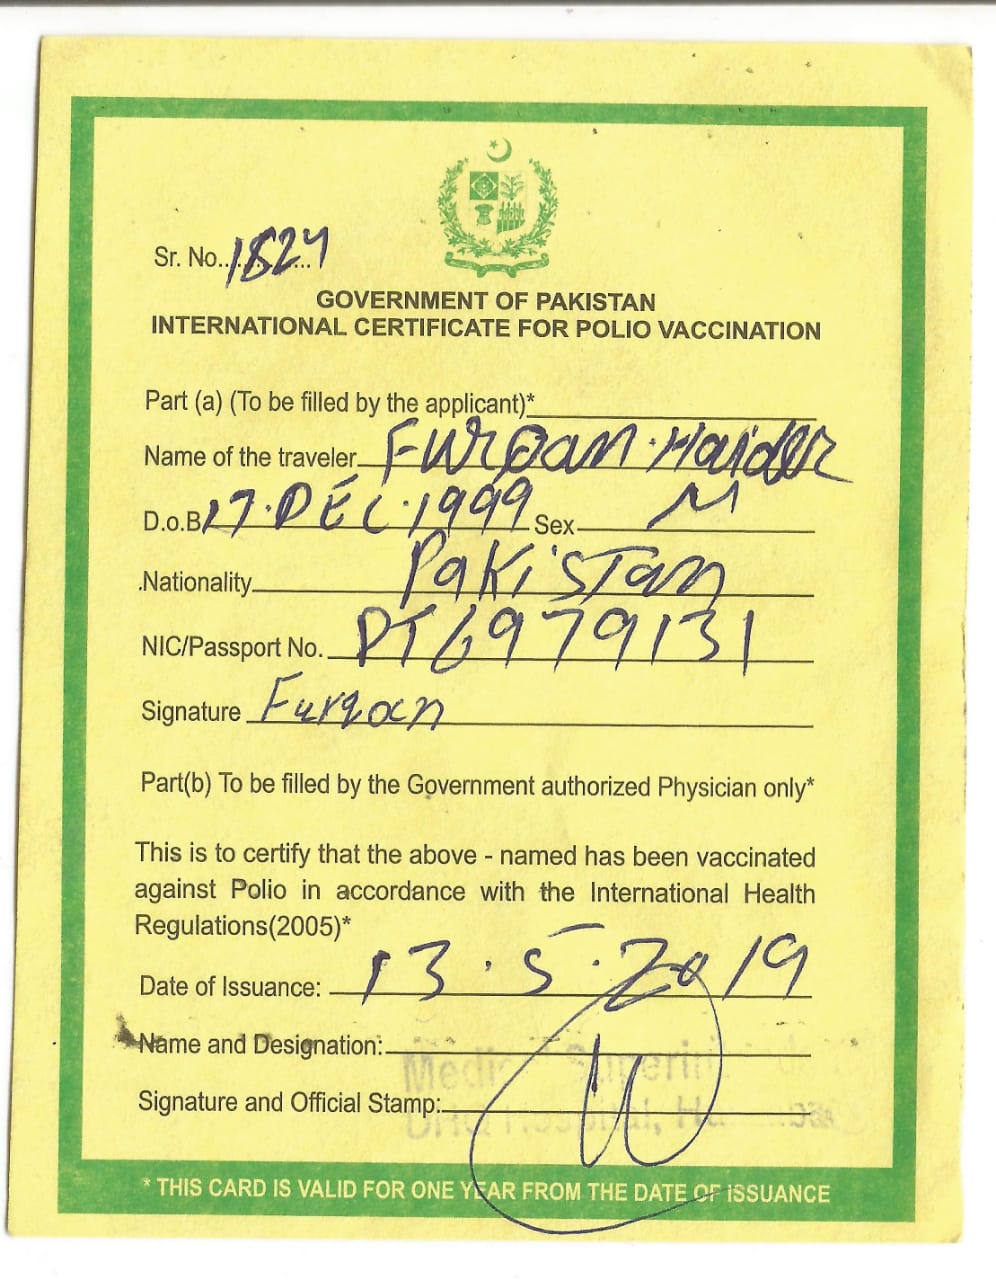 Sr. No. 1824
GOVERNMENT OF PAKISTAN
INTERNATIONAL CERTIFICATE FOR POLIO VACCINATION
Part (a) (To be filled by the applicant)*
Name of the traveler Furqan Haider
D.o.B 17.DEC.1999 Sex M
.Nationality Pakistan
NIC/Passport No. PT6979131
Signature Furqan
Part(b) To be filled by the Government authorized Physician only*
This is to certify that the above - named has been vaccinated
against Polio in accordance with the International Health
Regulations(2005)*
Date of Issuance: 13.5.2019
Name and Designation:
Signature and Official Stamp:
* THIS CARD IS VALID FOR ONE YEAR FROM THE DATE OF ISSUANCE